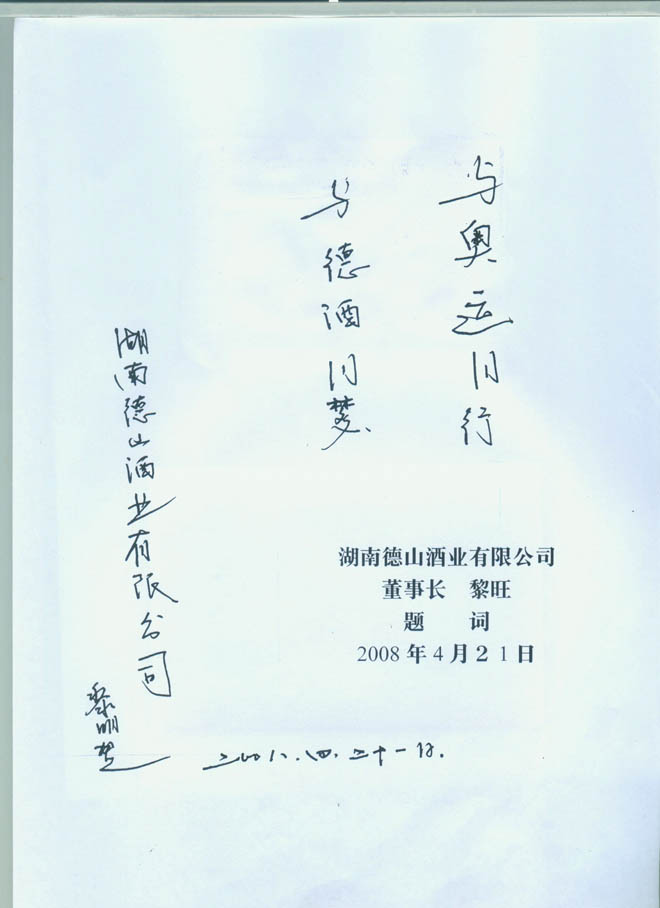 与奥运同行
与德酒同梦
湖南德山酒业有限公司
黎明楚
二００八.四.二十一日.
湖南德山酒业有限公司
董事长 黎旺
题 词
2008年4月21日